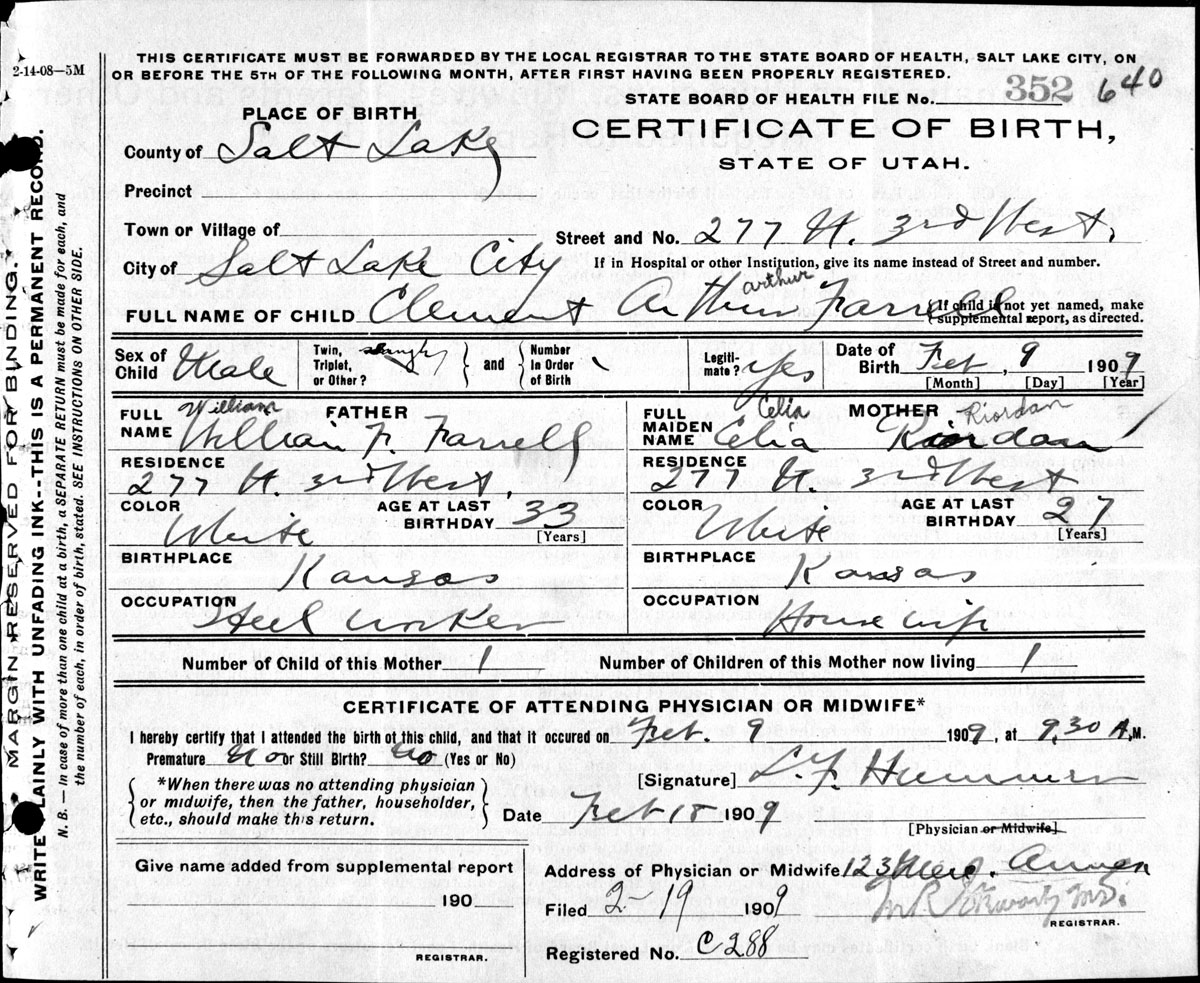 2-14-08—5M
THIS CERTIFICATE MUST BE FORWARDED BY THE LOCAL REGISTRAR TO THE STATE BOARD OF HEALTH, SALT LAKE CITY, ON
OR BEFORE THE 5TH OF THE FOLLOWING MONTH, AFTER FIRST HAVING BEEN PROPERLY REGISTERED.
STATE BOARD OF HEALTH FILE No. 352 640
PLACE OF BIRTH
CERTIFICATE OF BIRTH,
STATE OF UTAH.
County of Salt Lake
Precinct
Town or Village of
Street and No. 277 N. 3rd West.
City of Salt Lake City
If in Hospital or other Institution, give its name instead of Street and number.
arthur
FULL NAME OF CHILD Clement Arthur Farrell
(If child is not yet named, make
supplemental report, as directed.
Sex of Child Male
Twin, Triplet, or Other?
and
Number In Order of Birth
Legiti- mate? Yes
Date of Birth Feb, 9 1909
[Month] [Day] [Year]
FATHER
FULL NAME William
William F. Farrell
RESIDENCE
277 N. 3rd West.
COLOR White
AGE AT LAST BIRTHDAY 33
[Years]
BIRTHPLACE
Kansas
OCCUPATION
Steel worker
MOTHER
FULL MAIDEN NAME Celia Riordan
Celia Riordan
RESIDENCE
277 N. 3rd West
COLOR White
AGE AT LAST BIRTHDAY 27
[Years]
BIRTHPLACE
Kansas
OCCUPATION
House wife
Number of Child of this Mother 1
Number of Children of this Mother now living 1
CERTIFICATE OF ATTENDING PHYSICIAN OR MIDWIFE*
I hereby certify that I attended the birth of this child, and that it occured on Feb. 9 1909, at 9.30 A.M.
Premature No or Still Birth? No (Yes or No)
[Signature]
*When there was no attending physician
or midwife, then the father, householder,
etc., should make this return.
Date Feb 18 1909
[Physician or Midwife]
Give name added from supplemental report
190
REGISTRAR.
Address of Physician or Midwife 123
Filed 2-19 1909
REGISTRAR.
Registered No. C288
MARGIN RESERVED FOR BINDING.
WRITE PLAINLY WITH UNFADING INK--THIS IS A PERMANENT RECORD.
N. B. — In case of more than one child at a birth, a SEPARATE RETURN must be made for each, and
the number of each, in order of birth, stated. SEE INSTRUCTIONS ON OTHER SIDE.